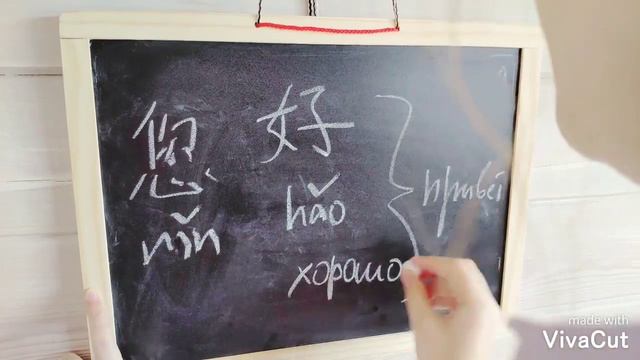 您 好
nǐn hǎo
хорошо
привет
made with
VivaCut